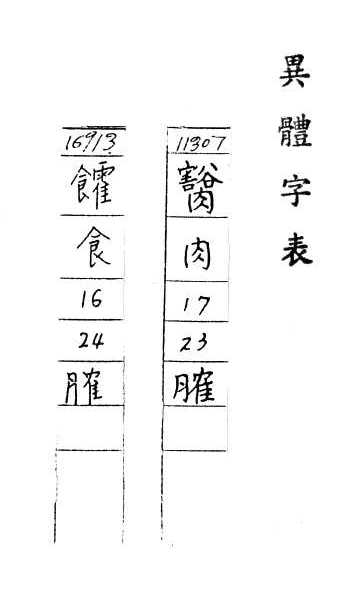 異體字表
11307
肉
17
23
16913
食
16
24